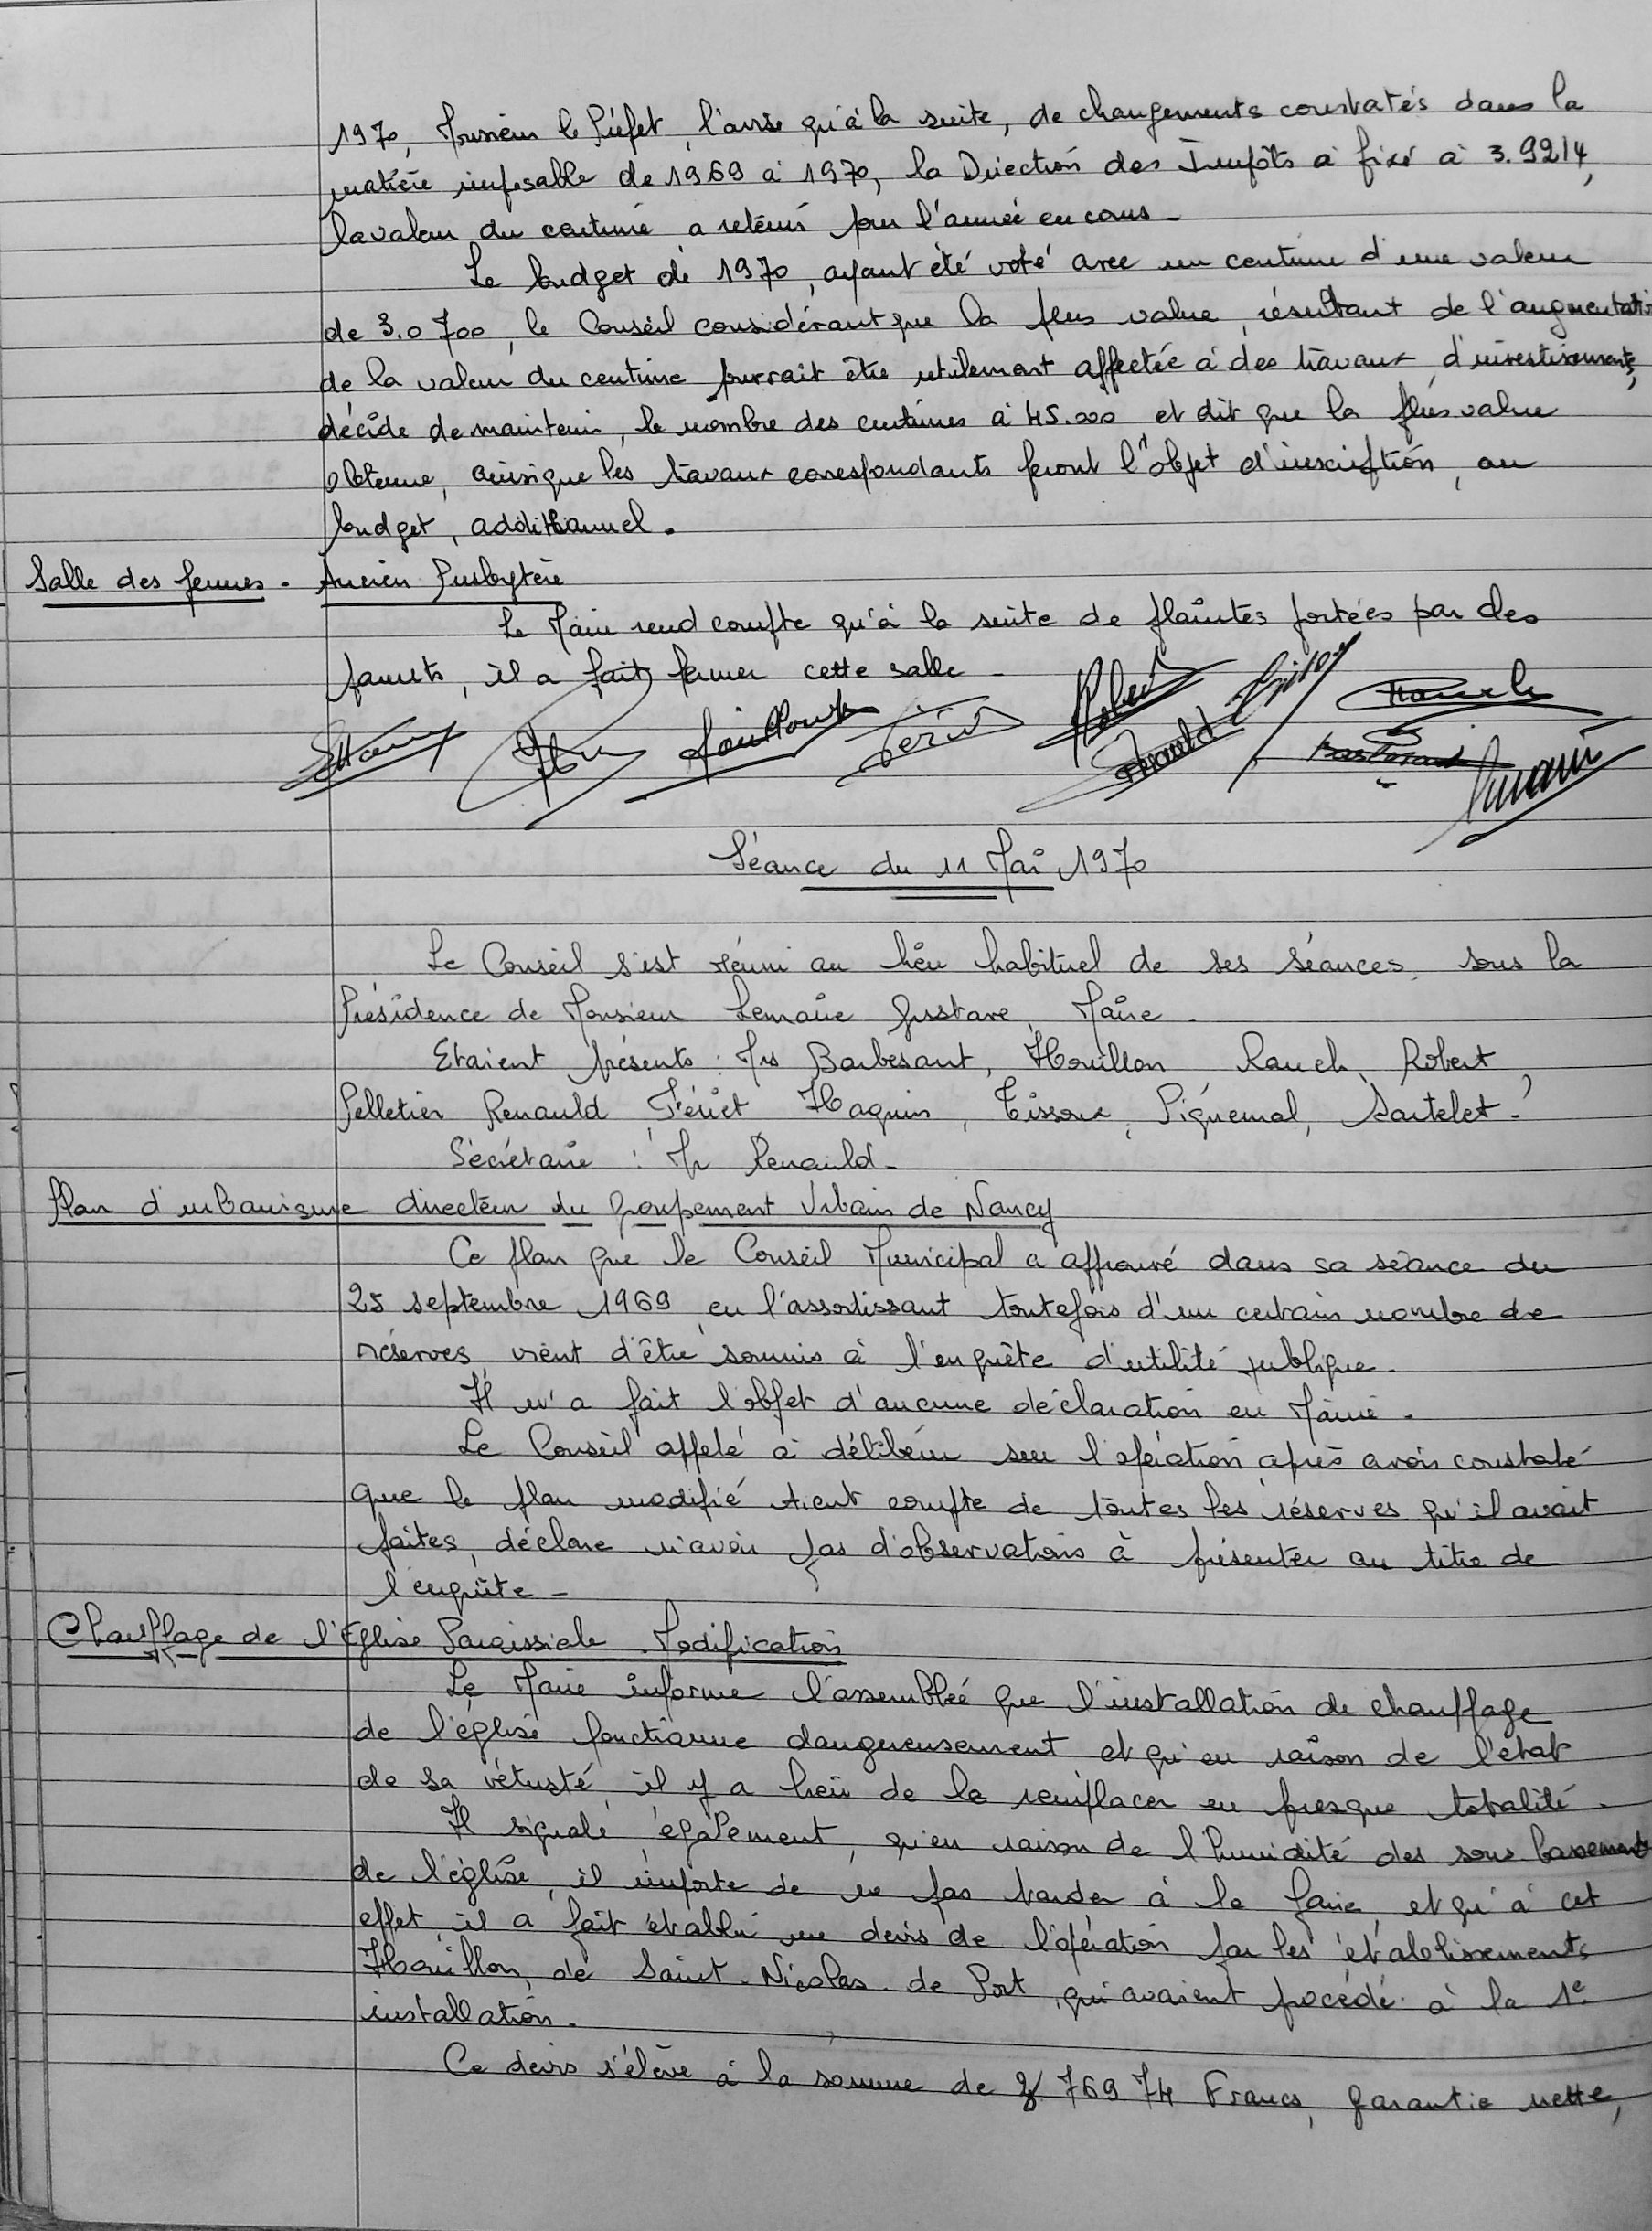 1970, Monsieur le Préfet, l'avise qu'à la suite, de changements constatés dans la
matière imposable de 1969 à 1970, la Direction des Impôts a fixé à 3.9214,
la valeur du centime a retenir pour l'année en cours -
Le budget de 1970, ayant été voté avec un centime d'une valeur
de 3.0700, le Conseil considérant que la plus value, résultant de l'augmentati
de la valeur du centime pourrait être utilement affectée à des travaux d'investissements,
décide de maintenir, le nombre des centimes à 45.000 et dit que la plus value
obtenue, ainsi que les travaux correspondants feront l'objet d'inscription, au
budget, additionnel.
Salle des jeunes - Ancien Presbytère
Le Maire rend compte qu'à la suite de plaintes portées par des
parents, il a fait fermer cette salle -
Séance du 11 Mai 1970
Le Conseil s'est réuni au lieu habituel de ses séances, sous la
Présidence de Monsieur Lemaire Gustave, Maire.
Etaient présents : Mrs Barbesant, Houillon Rauch, Robert,
Pelletier Renauld Fériet Haquin, Tissoux, Piquemal, Sartelet -
Secrétaire : Mr Renauld -
Plan d'urbanisme directeur du Groupement Urbain de Nancy
Ce plan que le Conseil Municipal a approuvé dans sa séance du
25 septembre 1969 en l'assortissant toutefois d'un certain nombre de
réserves, vient d'être soumis à l'enquête d'utilité publique.
Il n'a fait l'objet d'aucune déclaration en Mairie.
Le Conseil appelé à délibérer sur l'opération après avoir constaté
que le plan modifié tient compte de toutes les réserves qu'il avait
faites, déclare n'avoir pas d'observations à présenter au titre de
l'enquête -
Chauffage de l'Eglise Paroissiale - Modification
Le Maire informe l'assemblée que l'installation de chauffage
de l'église fonctionne dangereusement et qu'en raison de l'état
de sa vétusté, il y a lieu de la remplacer en presque totalité.
Il signale également, qu'en raison de l'humidité des sous bassements
de l'église, il importe de ne pas tarder à le faire, et qu'à cet
effet, il a fait établir un devis de l'opération par les établissements
Houillon, de Saint-Nicolas-de Port, qui avaient procédé à la 1e
installation.
Ce devis s'élève à la somme de 769 74 Francs, garantie nette,